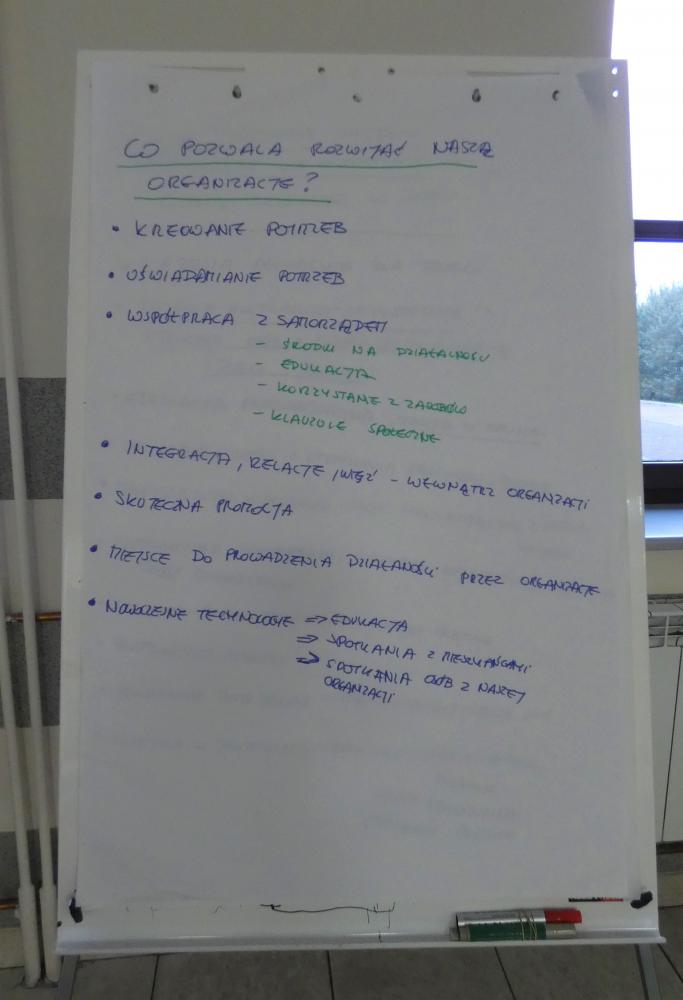 CO POZWALA ROZWIJAĆ NASZĄ
ORGANIZACJĘ?
• KREOWANIE POTRZEB
• UŚWIADAMIANIE POTRZEB
• WSPÓŁPRACA Z SAMORZĄDEM
- ŚRODKI NA DZIAŁALNOŚCI
- EDUKACJA
- KORZYSTANIE Z ZASOBÓW
- KLAUZULE SPOŁECZNE
• INTEGRACJA, RELACJE, WIĘŹ - WEWNĄTRZ ORGANIZACJI
• SKUTECZNA PROMOCJA
• MIEJSCE DO PROWADZENIA DZIAŁANOŚCI PRZEZ ORGANIZACJE
• NOWOCZESNE TECHNOLOGIE => EDUKACJA
=> SPOTKANIA Z MIESZKAŃCAMI
=> SPOTKANIA OSÓB Z NASZEJ
ORGANIZACJI